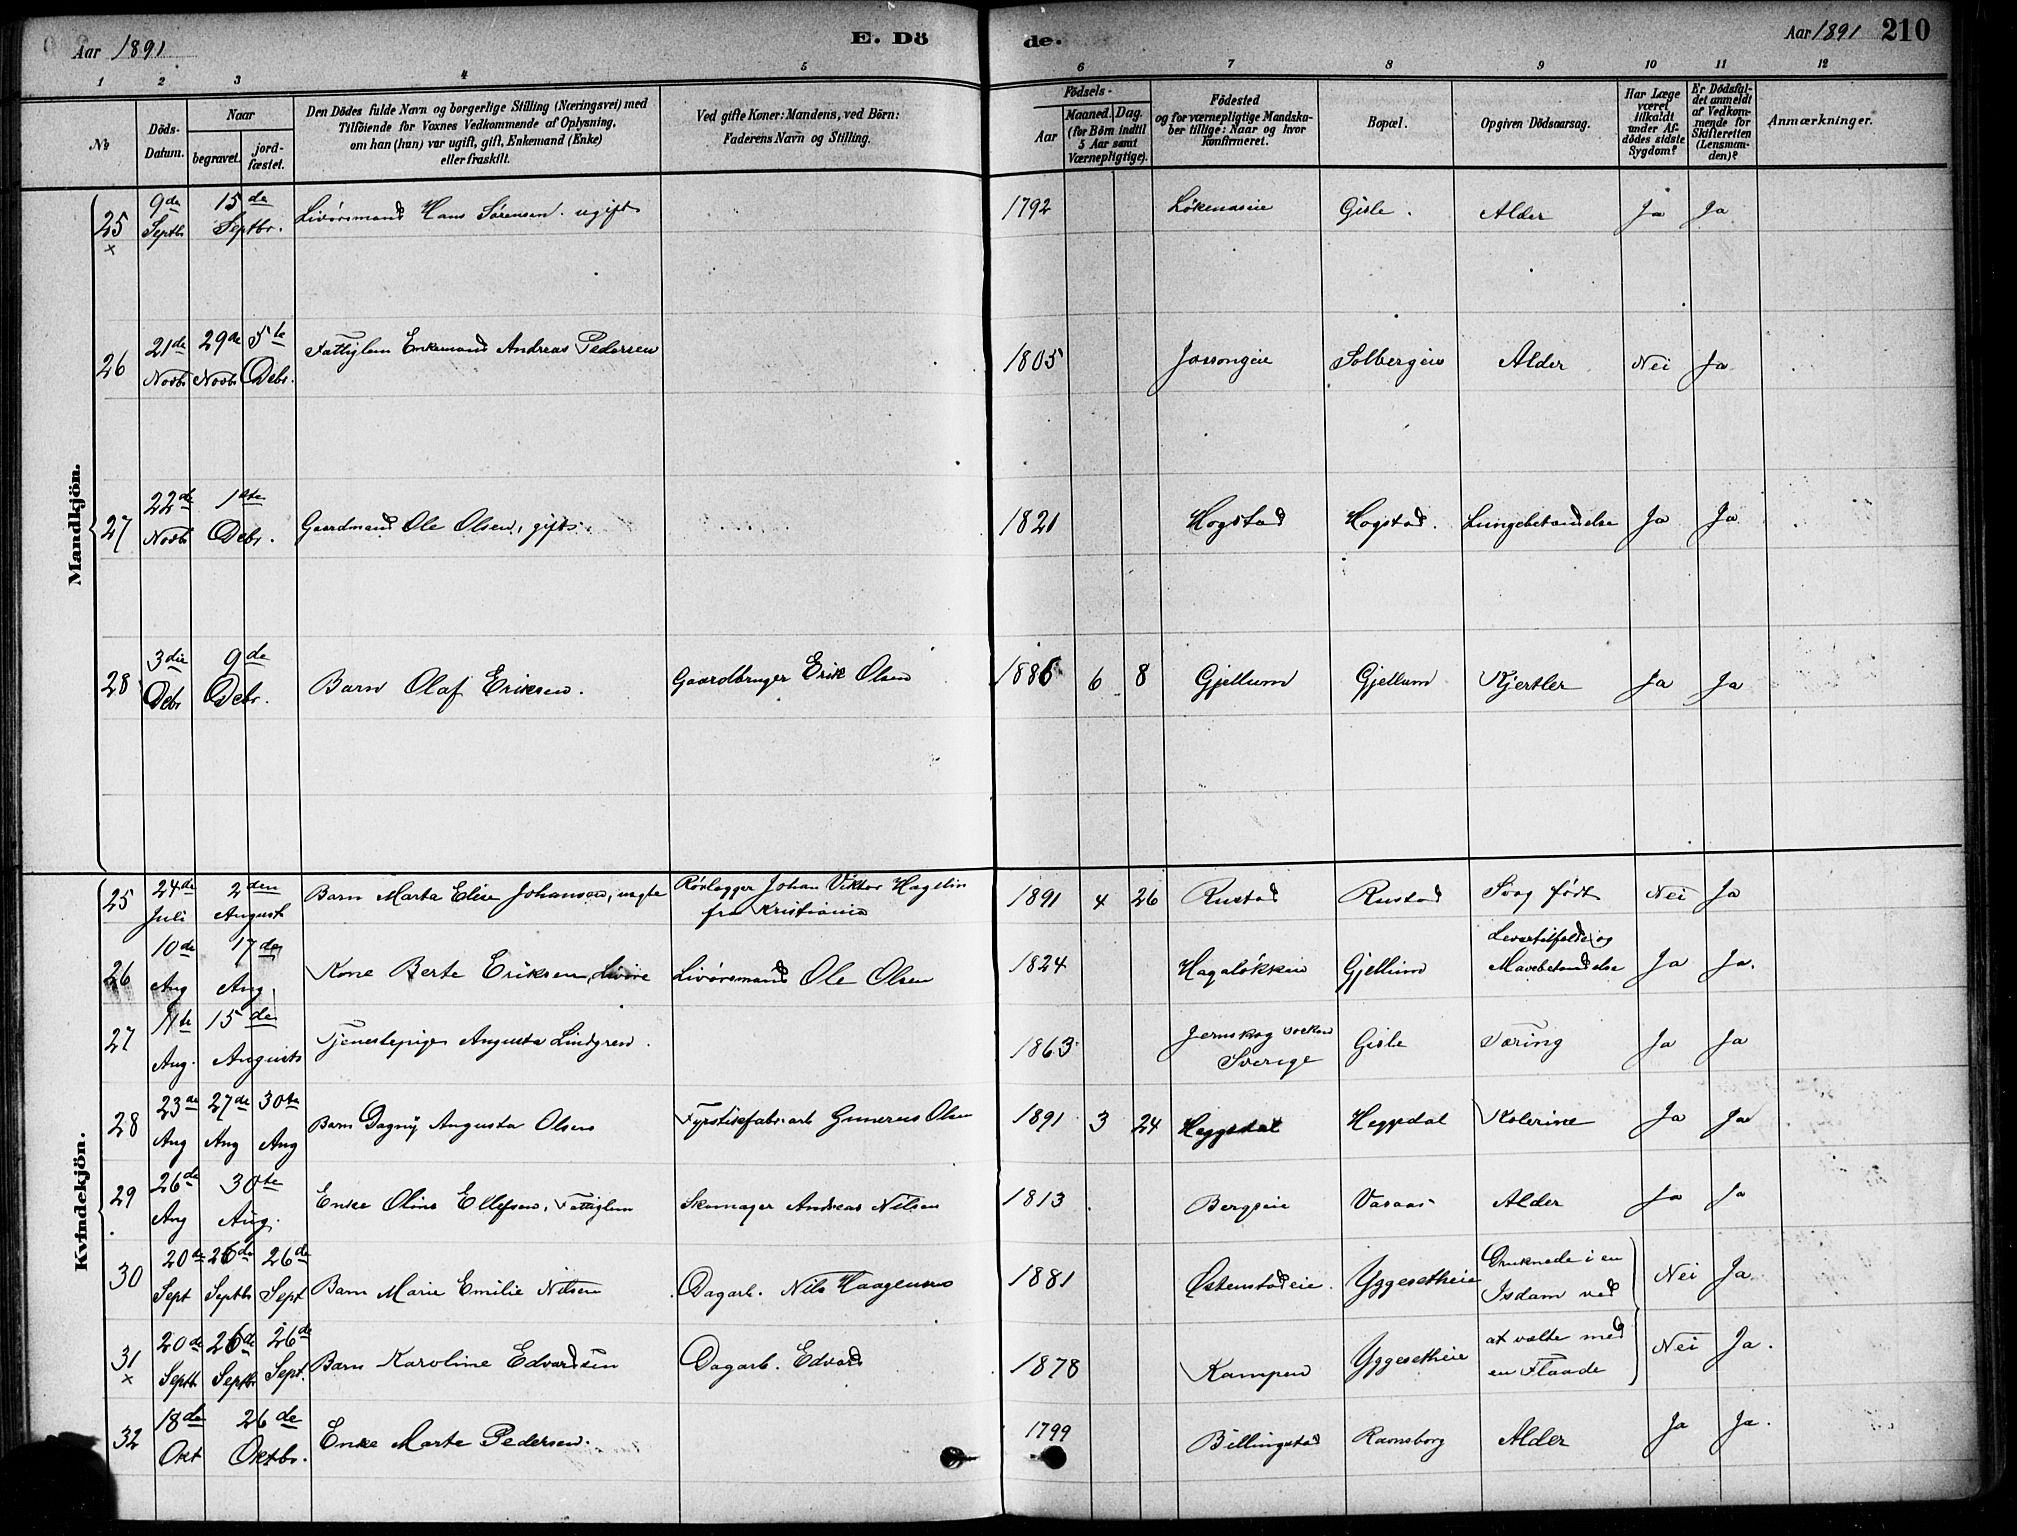 Aar 1891
E. Döde.
Aar 1891 210
1 2 3 4 5 6 7 8 9 10 11 12
No
Döds-Datum.
Naar
begravet.
jord-fæstet.
Den Dödes fulde Navn og borgerlige Stilling (Næringsvei) med
Tilföiende for Voxnes Vedkommende af Oplysning,
om han (hun) var ugift, gift, Enkemand (Enke)
eller fraskilt.
Ved gifte Koner: Mandens, ved Börn:
Faderens Navn og Stilling.
Födsels-
Aar
Maaned. Dag.
(for Börn indtil
5 Aar samt
Værnepligtige).
Födested
og for værnepligtige Mandska-
ber tillige: Naar og hvor
konfirmeret.
Bopæl.
Opgiven Dödsaarsag.
Har Læge
været
tilkaldt
under Af-
dödes sidste
Sygdom?
Er Dödsfal-
det anmeldt
af Vedkom-
mende for
Skifteretten
(Lensman-
den)?
Anmærkninger.
Mandkjön.
25 9de Septbr 15de Septbr. Livörsmand Hans Sörensen. ugift 1792 Gisle. Alder Ja Ja
x
26 21de Novbr 29de Novbr 5te Debr. Fattiglem Enkemand Andreas Pedersen 1805 Solbergeie Alder Nei Ja
27 22de Novbr 1ste Debr. Gaardmand Ole Olsen, gift. 1821 Hogstad Hogstad. Lungebetændelse Ja Ja
28 3die Debr 9de Debr. Barn Olaf Eriksen. Gaardbruger Erik Olsen 1886 6 8 Gjellum Gjellum Kjertler Ja Ja
Kvindekjön.
25 24de Juli 2den August Barn Marta Elise Johansen, uægte Rörlægger Johan Viktor Hagelin
fra Kristiania 1891 4 26 Rustad Rustad Svag födt Nei Ja
26 10de Aug 17de Aug. Kone Berte Eriksen, Livöre Livörsmand Ole Olsen 1824 Hagalökken Gjellum Levertilfælde og
Mavebetændelse Ja Ja.
27 11te Aug. 15de August Tjenestepige Augusta Lindgren. 1863 Jernskog socken
Sverige Gisle Tæring Ja Ja
28 23de Aug 27de Aug 30te Aug Barn Dagny Augusta Olsen Fyrstikfabr.arb Gunerus Olsen 1891 3 24 Heggedal Heggedal Kolerine Ja Ja
29 26de Aug 30te Aug. Enke Oline Ellefsen, Fattiglem Skomager Andreas Nilsen 1813 Bergseie Vasaas Alder Ja Ja
30 20de Sept 26de Septbr 26de Sept Barn Marie Emilie Nilsen Dagarb. Nils Haagensen 1881 Østenstadeie. Yggesetheie Druknede i en
Isdam ved Nei Ja
31 20de Septbr 26de Septbr 26de Sept. Barn Karoline Edvardsen Dagarb. Edvard 1878 Kampen Yggesetheie at vælte med
en Flaade Nei Ja.
x
32 18de Okt 26de Oktbr. Enke Marte Pedersen. 1799 Billingstad Ravnsborg Alder Ja Ja.